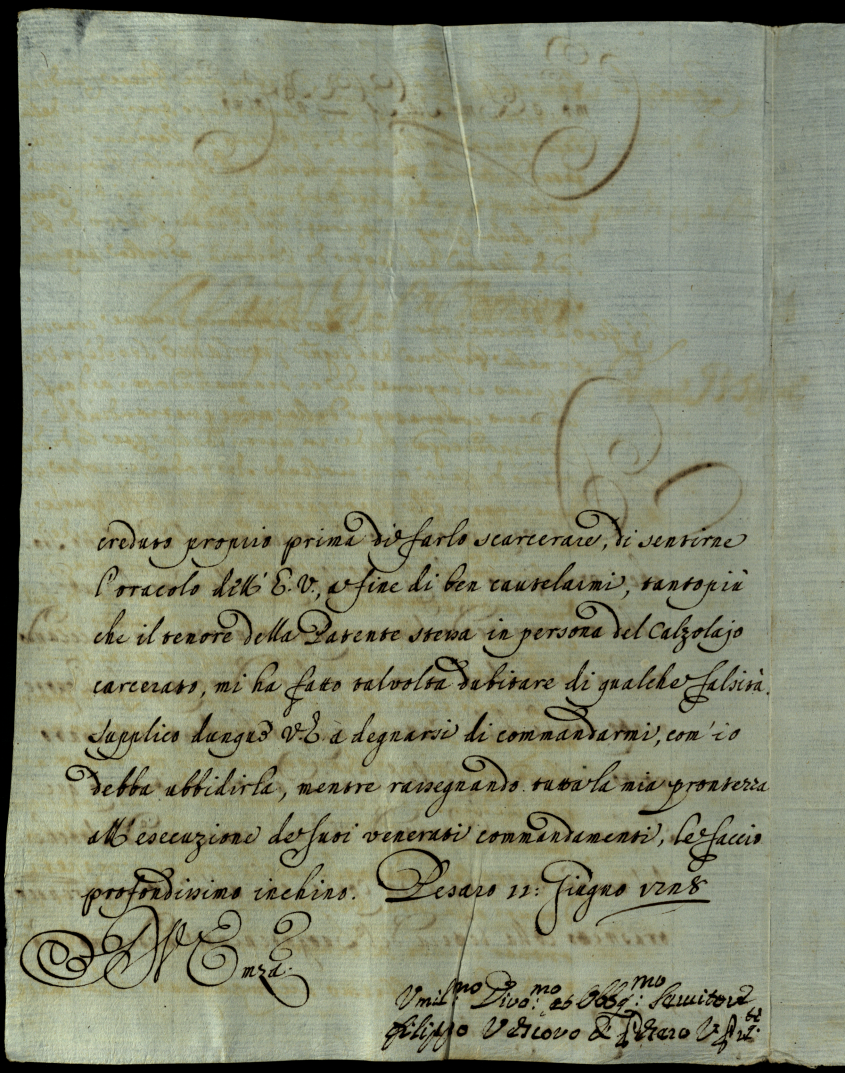 creduto proprio prima di farlo scarcerare, di sentirne
l'oracolo dell' E. V., a fine di ben cautelarmi, tantopiù
che il tenore della Patente stessa in persona del Calzolajo
carcerato, mi ha fatto talvolta dubitare di qualche falsità.
Supplico dunque V. E. à degnarsi di commandarmi, com' io
debba ubbidirla, mentre rassegnando tutta la mia prontezza
all' esecuzione de suoi venerati commandamenti, le faccio
profondissimo inchino. Pesaro 11: Giugno
All' E
mza.
Vmil:mo Divo:mo et Obbq:mo Servitore
Filippo Vescovo di Pesaro